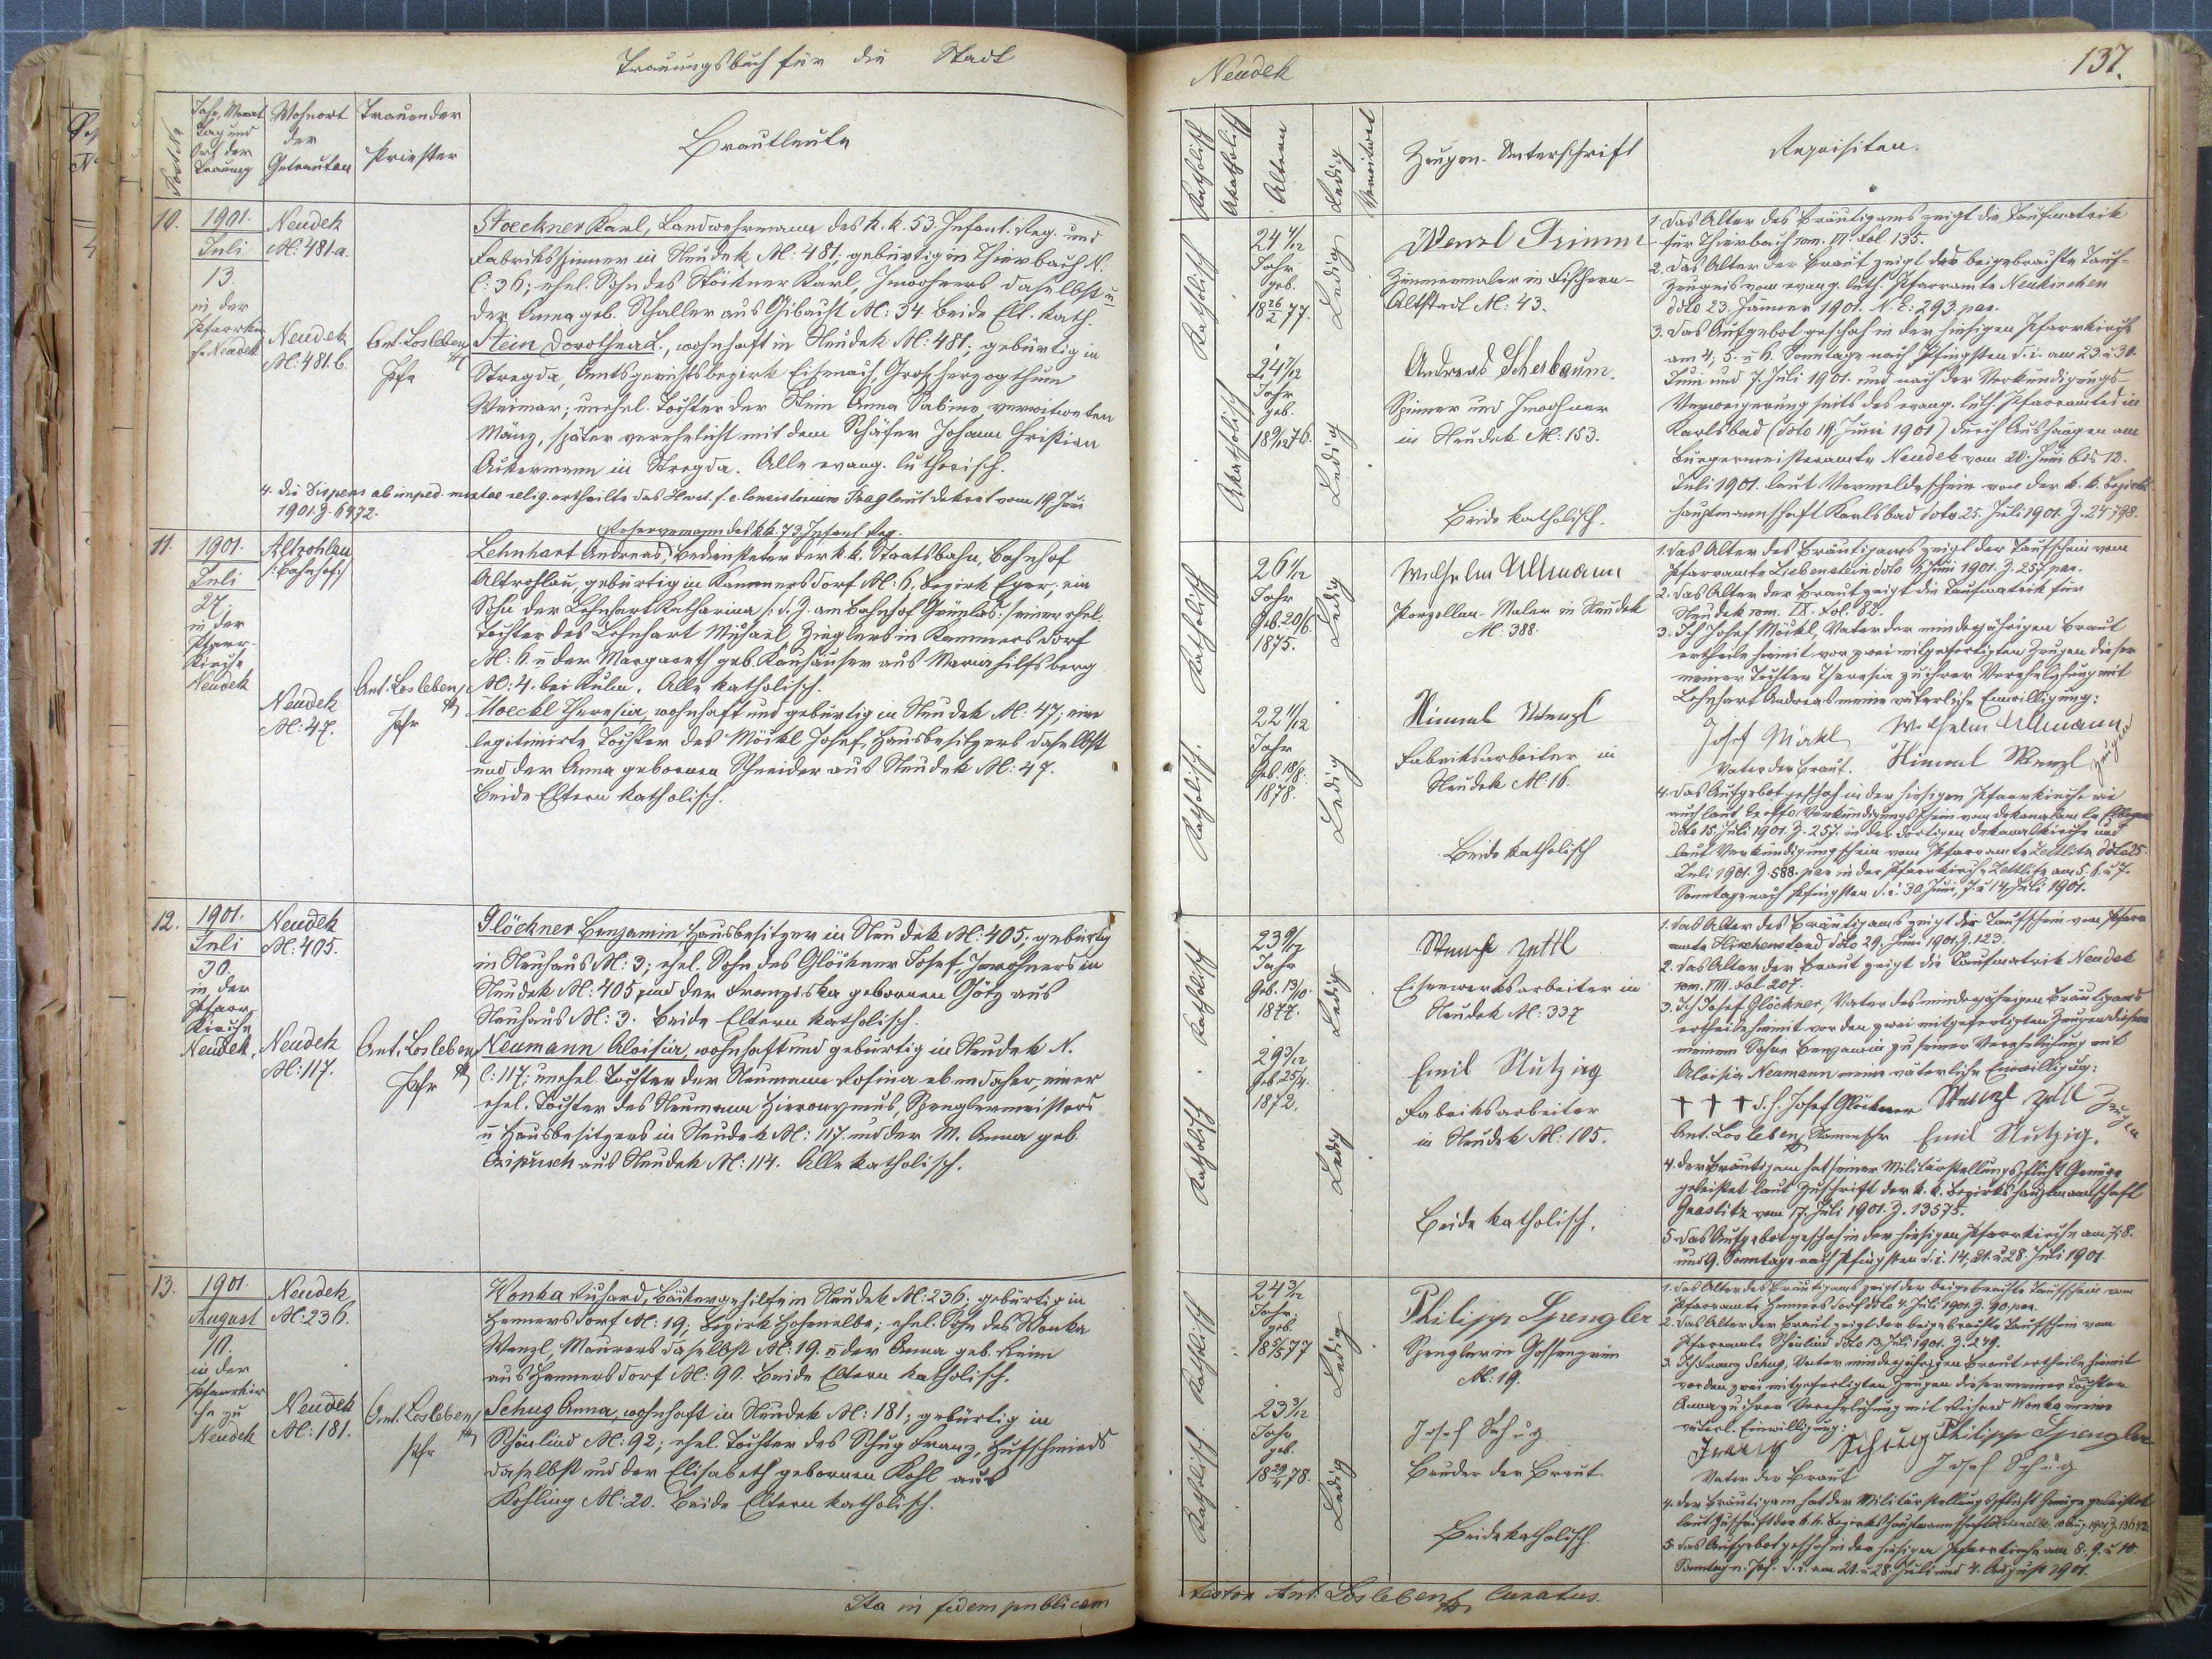 Trauungsbuch für die Stadt
Post-№
Jahr, Monat
Tag und
Ort der
Trauung
Wohnort
der
Getrauten
Trauender
Priester
Brautleute
10.
1901.
Juli
13.
in der
Neudek
№: 481.a.
Neudek
№: 481.b.
Ant. Losleben
Pfr
Stoeckner Karl, Landwehrmann des k. k. 53. Infant. Reg. und
Fabriksspinner in Neudek №: 481; gebürtig in Thierbach N.
C: 36; ehel. Sohn des Stöckner Karl, Inwohners daselbst u
der Anna geb. Schaller aus Gibacht №: 34. beide Elt. kath.
Stein Dorothea L., wohnhaft in Neudek №: 481., gebürtig in
Stregda, Amtsgerichtsbezirk Eisenach, Großherzogthum
Weimar; unehel. Tochter der Stein Anna Sabine, verwitweten
Mänz, später verehelicht mit dem Schäfer Johann Christian
Ackermann in Stregda. Alle evang. lutherisch.
4. Die Dispens ab imped. mixtae relig. ertheilte das Hochw. f. e. Consistorium Prag laut Dekret vom 19. Juni
1901 Z. 6472.
11.
1901.
Juli
27.
in der
Pfarr-
kirche
Neudek
Altrohlau
/: Bahnhof :/
Neudek
№: 47.
Ant. Losleben
Pfr
Reservemann des k. k. 73. Infant. Reg.
Lehnhart Andreas, Bediensteter der k. k. Staatsbahn, Bahnhof
Altrohlau, gebürtig in Kammersdorf №: 6. Bezirk Eger; ein
Sohn der Lehnhart Katharina /: d. Z. am Bahnhof Grünlas :/ einer ehel.
Tochter des Lehnhart Michael, Zieglers in Kammersdorf
№: 6. u der Margareth geb. Kauhäuser aus Mariahilfsberg
№: 4. bei Kulm. Alle katholisch.
Moeckl Theresia, wohnhaft und gebürtig in Neudek №: 47; eine
legitimirte Tochter des Möckl Josef, Hausbesitzers daselbst
und der Anna gebornen Schneider aus Neudek №: 47.
Beide Eltern katholisch.
12.
1901.
Juli
30.
in der
Pfarr-
kirche
Neudek,
Neudek
№: 405.
Neudek
№: 117.
Ant. Losleben
Pfr
Glöckner Benjamin, Hausbesitzer in Neudek №: 405; gebürtig
in Neuhaus №: 3; ehel. Sohn des Glöckner Josef, Inwohners in
Neudek №: 405 und der Franziska gebornen Götz aus
Neuhaus №: 3. Beide Eltern katholisch.
Neumann Aloisia, wohnhaft und gebürtig in Neudek N.
C: 117; unehel. Tochter der Neumann Rosina ebendaher, einer
ehel. Tochter des Neumann Hieronymus, Spenglermeisters
u Hausbesitzers in Neudek №: 117. und der M. Anna geb.
aus Neudek №: 114. Alle katholisch.
13.
1901
August
10.
in der
Pfarrkir
che zu
Neudek
Neudek
№: 236.
Neudek
№: 181.
Ant. Losleben
Pfr
Wonka Richard, Bäckergehilfe in Neudek №: 236; gebürtig in
Hennersdorf №: 19; Bezirk Hohenelbe; ehel. Sohn des Wonka
Wenzl, Maurers daselbst №: 19. u der Anna geb.
aus Hennersdorf №: 90. Beide Eltern katholisch.
Schug Anna, wohnhaft in Neudek №: 181; gebürtig in
Schönlind №: 92; ehel. Tochter des Schug Franz, Hufschmieds
daselbst und der Elisabeth gebornen Kohl aus
Kohling №: 20. Beide Eltern katholisch.
Ita in fidem publicam
Neudek
137.
Katholisch
Akatholisch
Altern
Ledig
Verwitwet
Zeugen-Unterschrift
Requisiten.
Katholisch
24 4/12
Jahr
geb.
18 26/2 77.
Ledig
Wenzl Grimm
Zimmermaler in Fischern-
Altstadt №: 43.
Akatholisch
24 7/12
Jahr
geb.
Ledig
Andreas Scherbaum.
Spinner und Inwohner
in Neudek №: 153.
Beide katholisch.
1. Das Alter des Bräutigams zeigt die Taufmatrik
für Thierbach tom. II. Fol 135.
2. Das Alter der Braut zeigt das beigebrachte Tauf-
zeugnis vom evang. luth. Pfarramte Neukirchen
ddto 23. Jänner 1901. N. E: 293. par.
3. Das Aufgebot geschah in der hiesigen Pfarrkirche
am 4., 5. u 6. Sonntage nach Pfingsten d. i. am 23. u 30.
Juni und 7. Juli 1901. und nach der Verkündigungs-
Verweigerung seits des evang. luth. Pfarramtes in
Karlsbad (ddto 19. Juni 1901) durch Aushängen am
Bürgermeisteramte Neudek vom 20. Juni bis 12.
Juli 1901. laut Vermeldschein von der k. k. Bezirks-
hauptmannschaft Karlsbad ddto 25. Juli 1901. Z. 24,798.
Katholisch
26 1/12
Jahr
Geb. 20/6
1875.
Ledig
Wilhelm Ullmann
Porzellan-Maler in Neudek
№: 388.
Katholisch.
22 11/12
Jahr
Geb. 18/8.
1878.
Ledig
Himmel Wenzl
Fabriksarbeiter in
Neudek №: 16.
Beide katholisch
1. Das Alter des Bräutigams zeigt der Taufschein vom
Pfarramte Liebenstein ddto Juni 1901. Z. 257. par.
2. Das Alter der Braut zeigt die Taufmatrik für
Neudek tom. IX. Fol. 82.
3. Ich Josef Möckl, Vater der minderjährigen Braut
ertheile hiemit vor zwei mitgefertigten Zeugen dieser
meiner Tochter Theresia zu ihrer Verehelichung mit
Lehnhart Andreas meine väterliche Einwilligung:
Josef Möckl Wilhelm Ullmann
Vater der Braut. Himmel Wenzl Zeugen
4. Das Aufgebot geschah in der hiesigen Pfarrkirche wie
auch laut Verkündigungschein vom Dekanalamte Elbogen
ddto 15. Juli 1901. Z. 257. in der dortigen Dekanalkirche und
laut Verkündigungschein vom Pfarramte Zettlitz ddto 25.
Juli 1901. Z. 588. par in der Pfarrkirche Zettlitz am 5. 6. u 7.
Sonntage nach Pfingsten d. i. 30. Juni, 7. u 14. Juli 1901.
Katholisch
23 9/12
Jahr
Geb. 13/10.
1877.
Ledig
Wenzl Zettl
Eisenwerksarbeiter in
Neudek №: 337
Katholisch
29 3/12
Geb. 25/4.
1872.
Ledig
Emil Nutzig
Fabriksarbeiter
in Neudek №: 105.
Beide katholisch.
1. Das Alter des Bräutigams zeigt der Taufschein vom Pfarr
amte Hirschenstand ddto 29. Juni 1901. Z. 123.
2. Das Alter der Braut zeigt die Taufmatrik Neudek
tom. VIII. Fol. 207.
3. Ich Josef Glöckner, Vater des minderjährigen Bräutigams
ertheile hiemit vor den zwei mitgefertigten Zeugen diesem
meinem Sohne Benjamin zu seiner Verehelichung mit
Aloisia Neumann meine väterliche Einwilligung:
† † † d. h. Josef Glöckner Wenzl Zettl Zeugen
Ant. Losleben, Namensfr Emil Nutzig.
4. Der Bräutigam hat seiner Militärstellungspflicht Genüge
geleistet laut Zuschrift der k. k. Bezirkshauptmannschaft
Graslitz vom 17. Juli 1901. Z. 13575.
5. Das Aufgebot geschah in der hiesigen Pfarrkirche am 7. 8.
und 9. Sonntage nach Pfingsten d. i. 14., 21. u 28. Juli 1901.
Katholisch
24 3/12
Jahr.
geb.
Ledig
Philipp Spengler
Spengler in Gossengrün
№: 19.
Katholisch
23 3/12
Jahr
geb.
18 29/4 78.
Ledig
Josef Schug
Bruder der Braut
Beide katholisch
1. Das Alter des Bräutigams zeigt der beigebrachte Taufschein vom
Pfarramte Hennersdorf ddto 4. Juli 1901. Z. 90. par.
2. Das Alter der Braut zeigt der beigebrachte Taufschein vom
Pfarramte Schönlind ddto 13. Juli 1901. Z. 249.
3. Ich Franz Schug, Vater minderjährigen Braut ertheile hiemit
vor den zwei mitgefertigten Zeugen dieser meiner Tochter
Anna zu ihrer Verehelichung mit Richard Wonka meine
väterl. Einwilligung:
Franz Schug Philipp Spengler
Vater der Braut Josef Schug
4. Der Bräutigam hat der Militärstellungspflicht Genüge geleistet
laut Zuschrift der k. k. Bezirkshauptmannschaft Hohenelbe,
5. Das Aufgebot geschah in der hiesigen Pfarrkirche am 8., 9. u 10.
Sonntag n. Pfs. d. i. am 21. u 28. Juli und 4. August 1901.
testor Ant. Losleben Curatus.